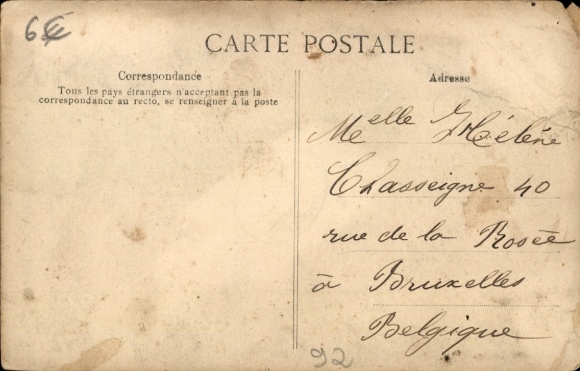 6€
CARTE POSTALE
Correspondance
Tous les pays étrangers n'acceptant pas la
correspondance au recto, se renseigner à la poste
Adresse
Melle Hélène
Chasseigne 40
rue de la Rosée
à Bruxelles
Belgique
92